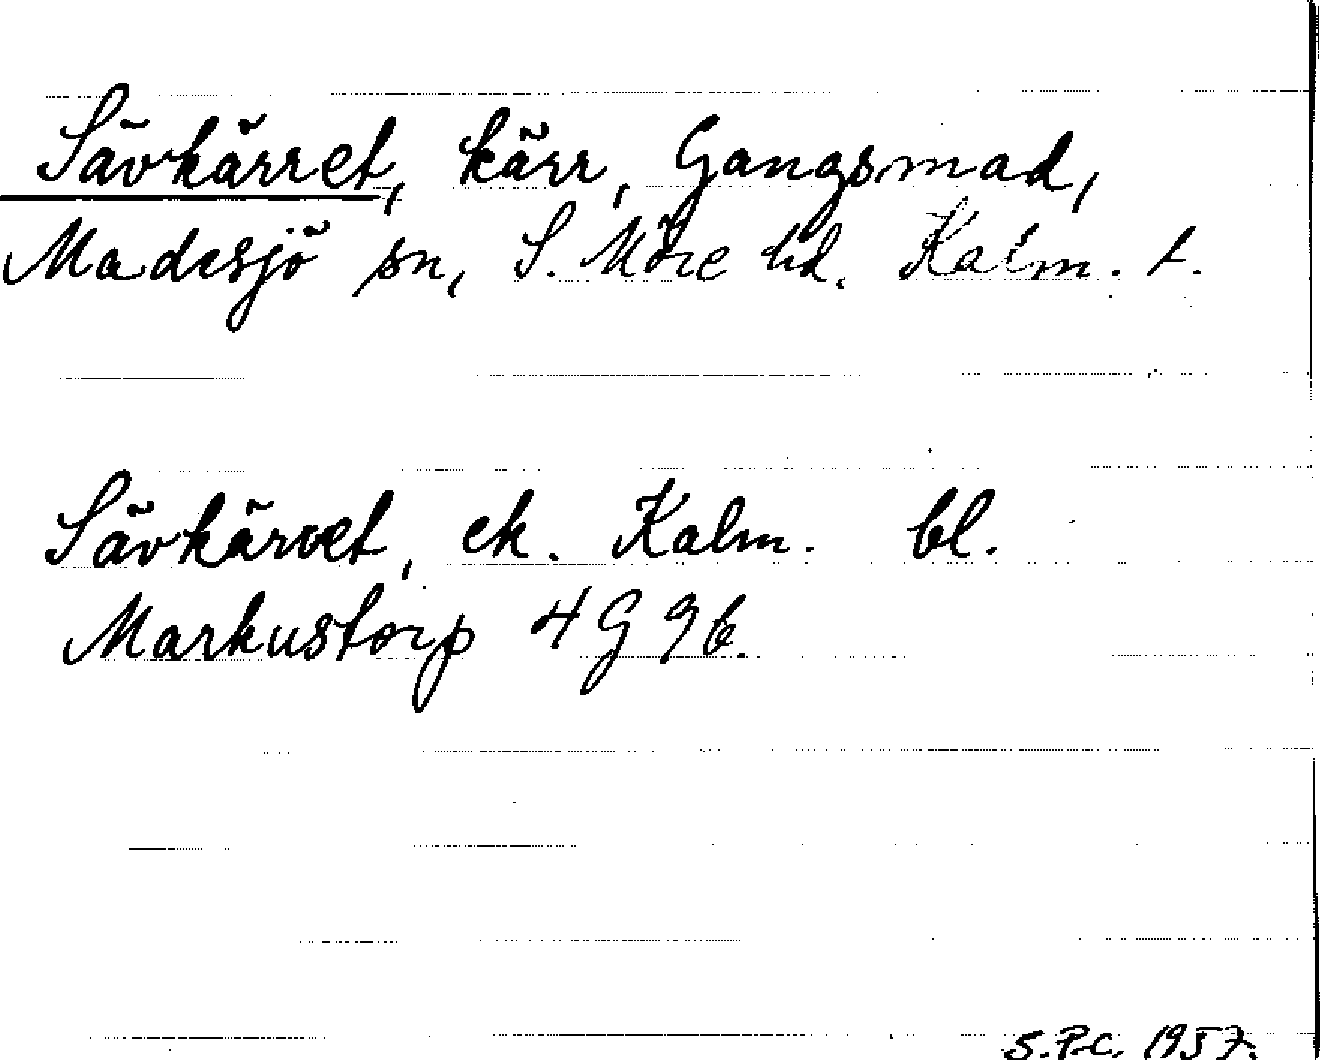 Sävkärret, kärr, Gangsmad,
Madesjö sn, S. Möre hd. Kalm. l.
Sävkärret, ek. Kalm. bl.
Markustorp 4G 9b.
S.P.C. 1957.